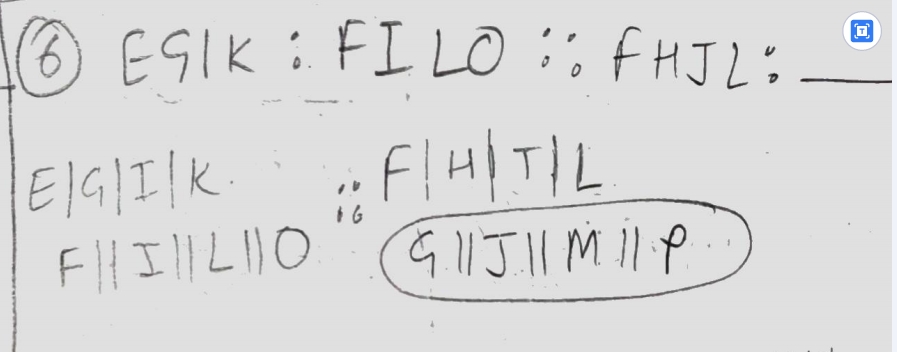 6 EGIK : FILO :: FHJL : ____
E|G|I|K :: F|H|T|L
F||I||L||O G||J||M||P